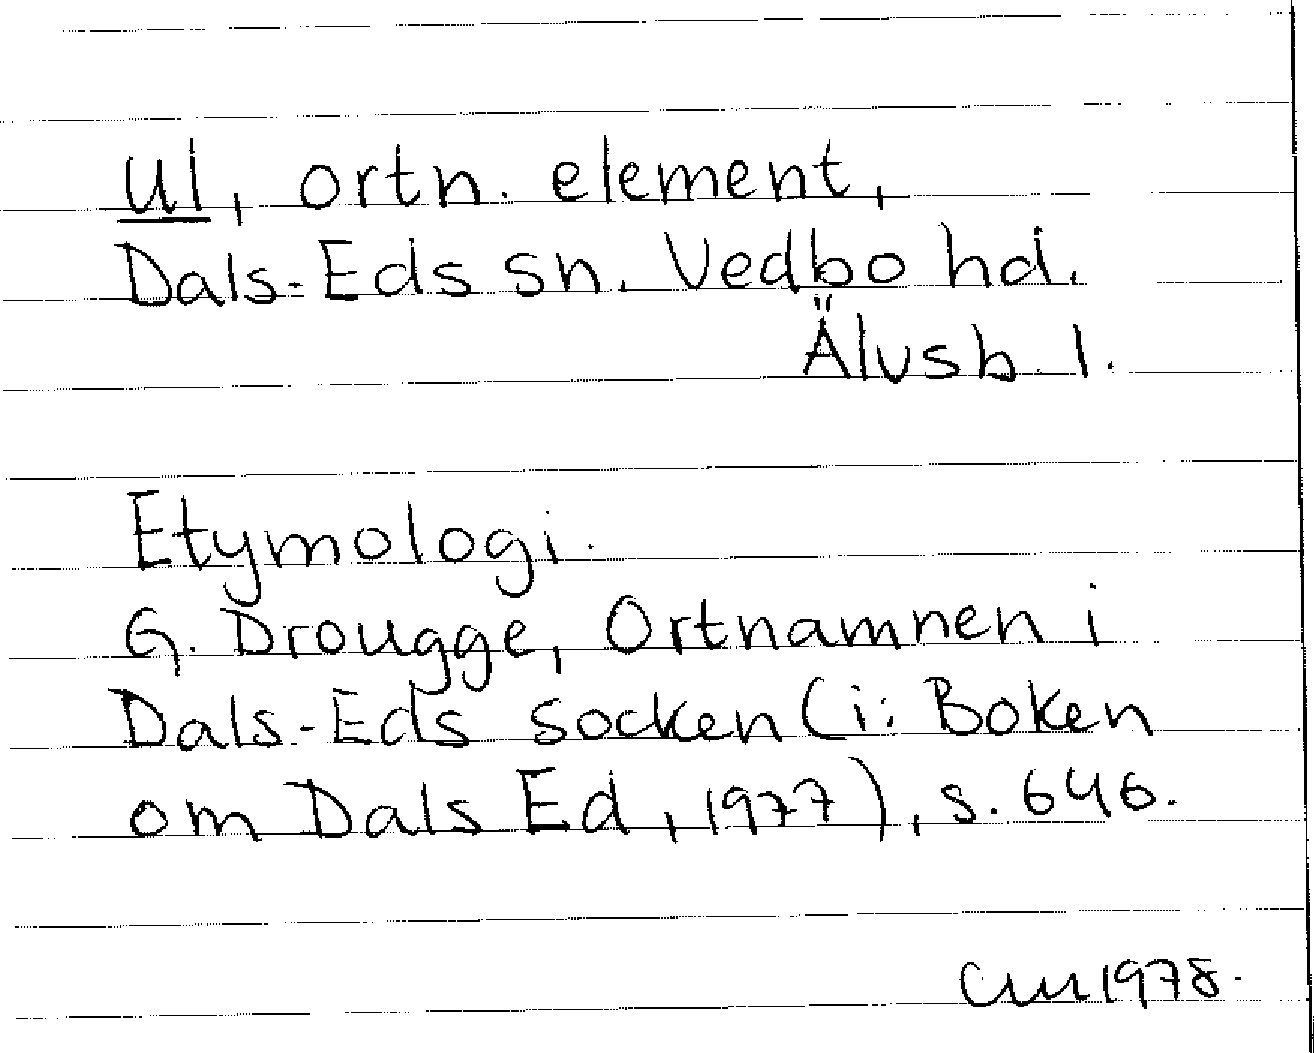 ul, ortn. element,
Dals-Eds sn. Vedbo hd.
Älvsb. l.
Etymologi.
G. Drougge, Ortnamnen i
Dals-Eds socken (i: Boken
om Dals Ed, 1977), s. 646.
CM 1978.